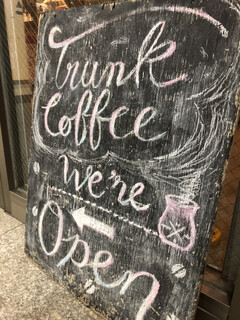 Trunk
Coffee
We're
Open